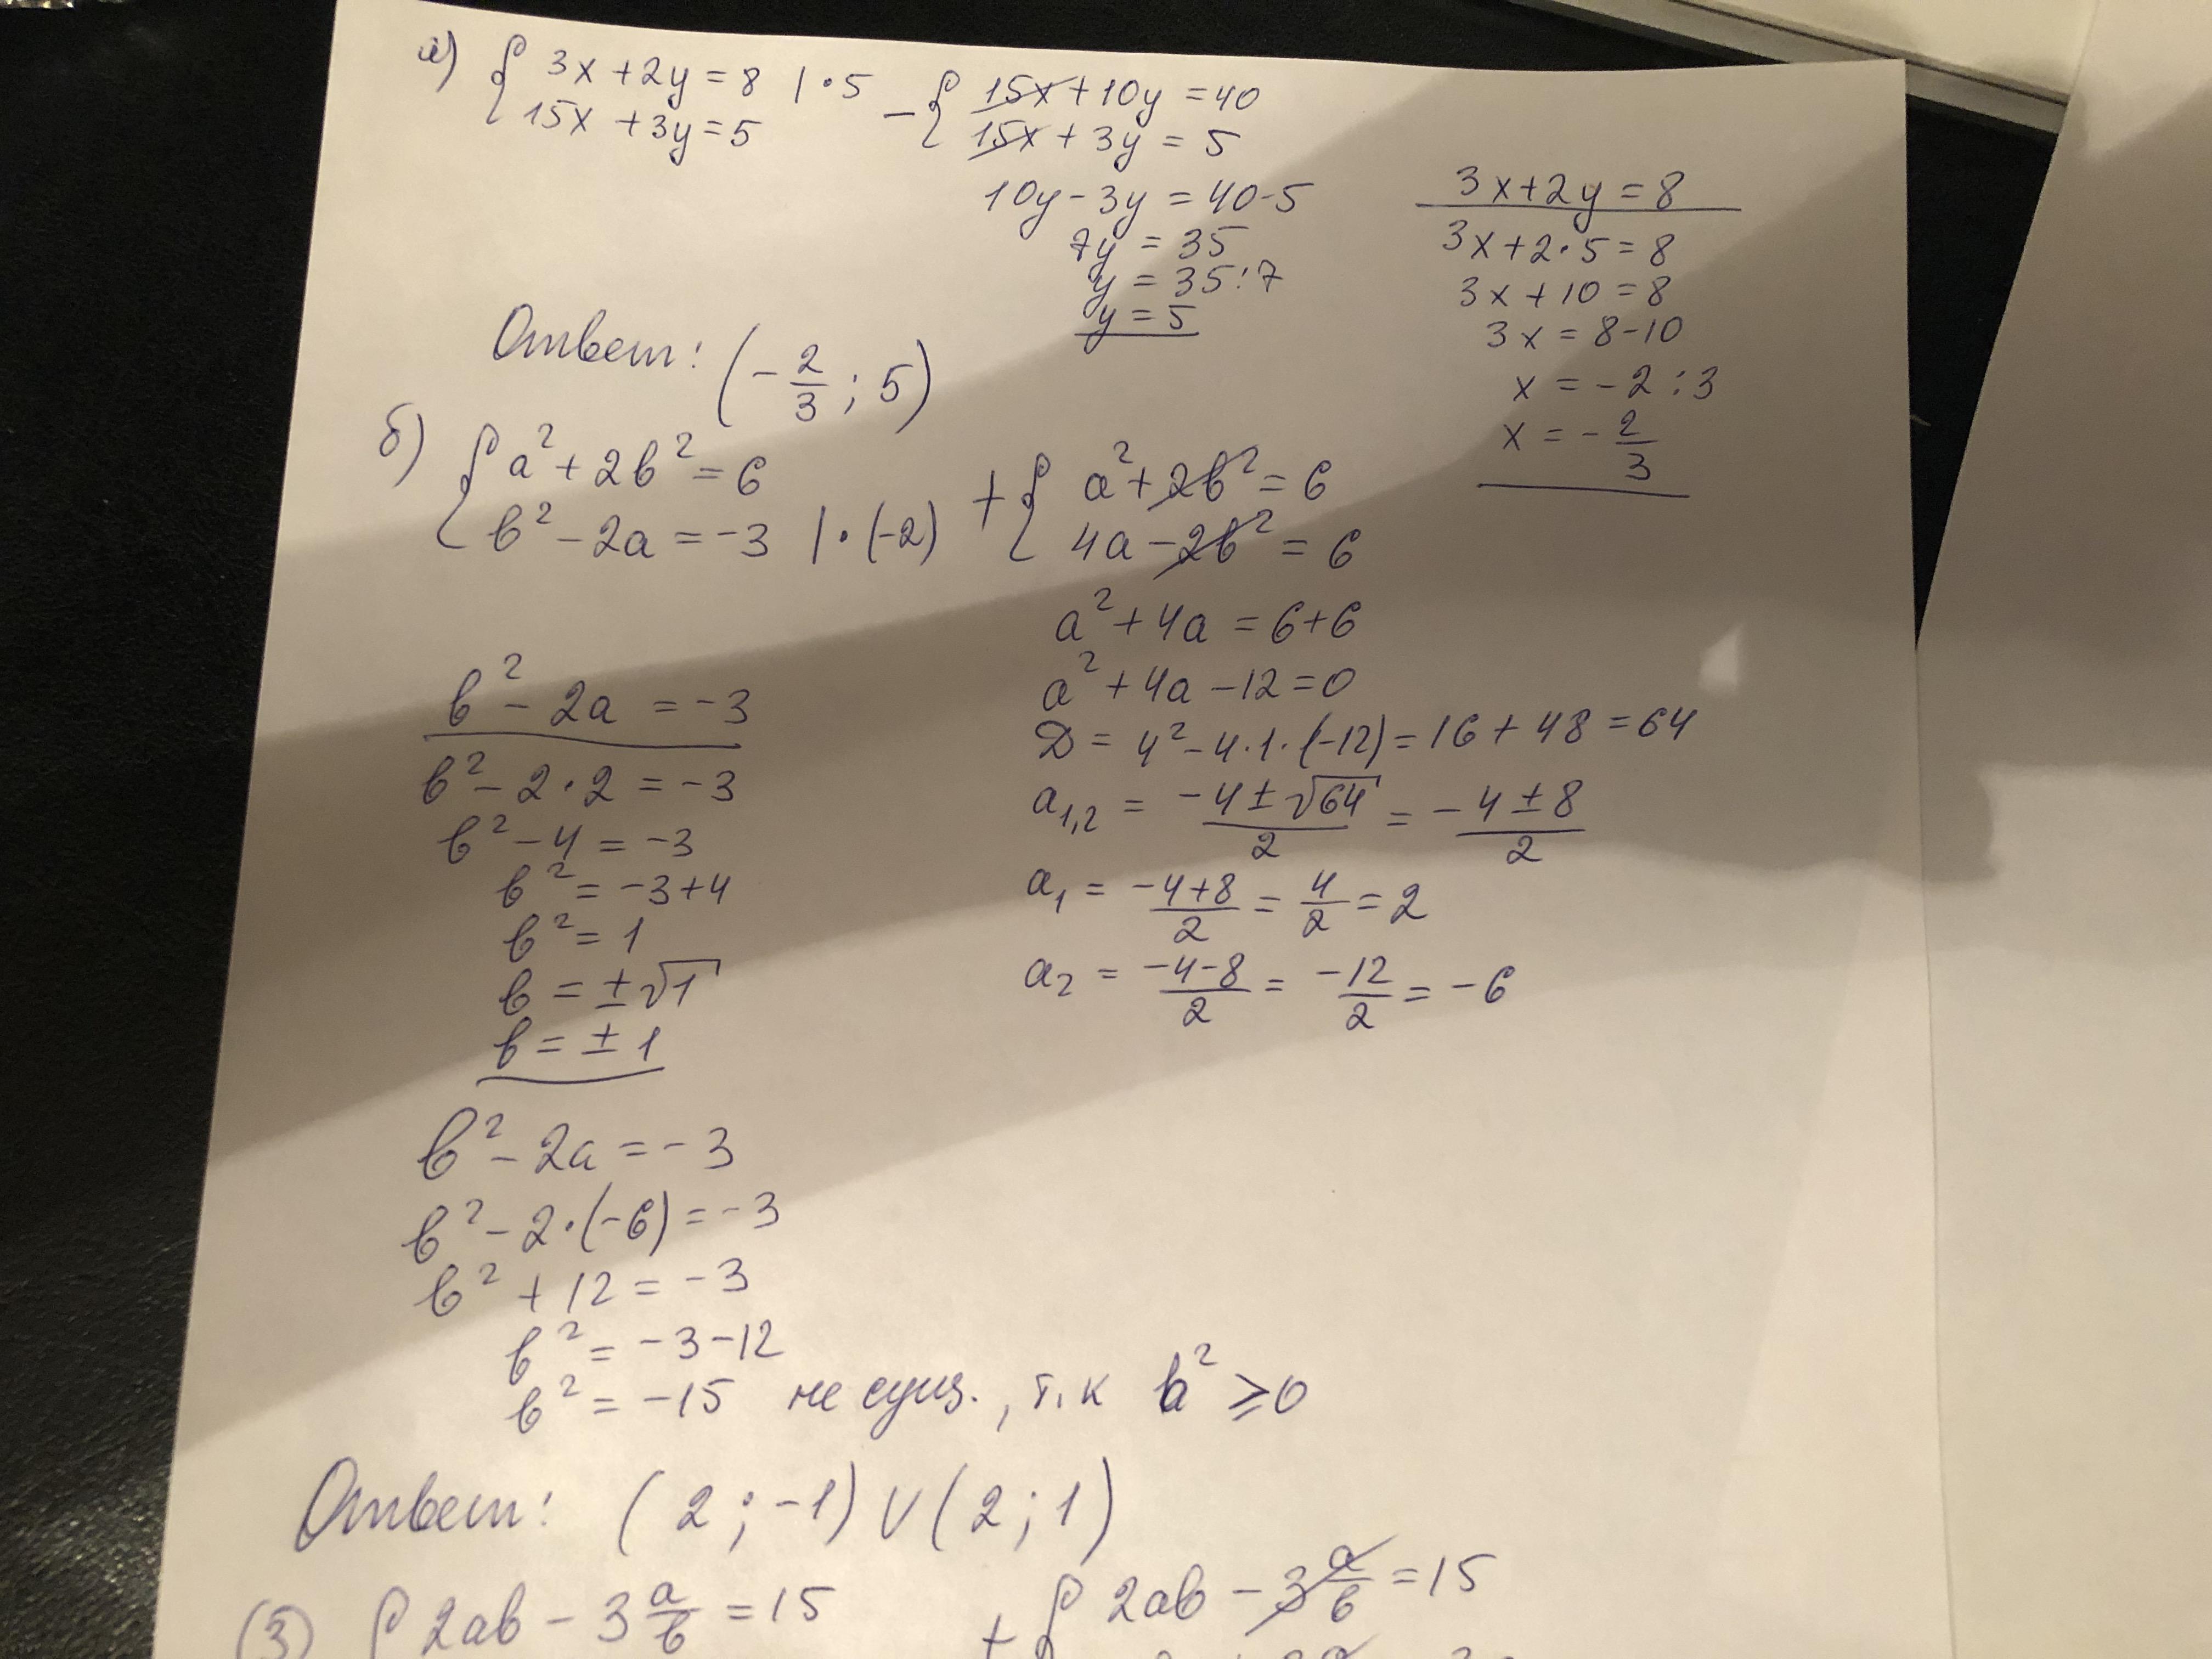 а) { 3x + 2y = 8 | · 5
15x + 3y = 5
− { 15x + 10y = 40
15x + 3y = 5
10y − 3y = 40 - 5
7y = 35
y = 35 : 7
y = 5
3x + 2y = 8
3x + 2 · 5 = 8
3x + 10 = 8
3x = 8 - 10
x = - 2 : 3
x = - 2/3
Ответ: (- 2/3 ; 5)
б) { a² + 2b² = 6
b² − 2a = −3 | · (−2)
+ { a² + 2b² = 6
4a − 2b² = 6
a² + 4a = 6 + 6
a² + 4a − 12 = 0
D = 4² − 4 · 1 · (−12) = 16 + 48 = 64
a₁,₂ = (−4 ± √64)/2 = (−4 ± 8)/2
a₁ = (−4 + 8)/2 = 4/2 = 2
a₂ = (−4 − 8)/2 = −12/2 = −6
b² − 2a = −3
b² − 2 · 2 = −3
b² − 4 = −3
b² = −3 + 4
b² = 1
b = ± √1
b = ± 1
b² − 2a = −3
b² − 2 · (−6) = −3
b² + 12 = −3
b² = −3 − 12
b² = −15 не сущ., т.к b² ⩾ 0
Ответ: (2 ; −1) ∨ (2 ; 1)
(3) { 2ab − 3 a/b = 15
+ { 2ab − 3 a/b = 15